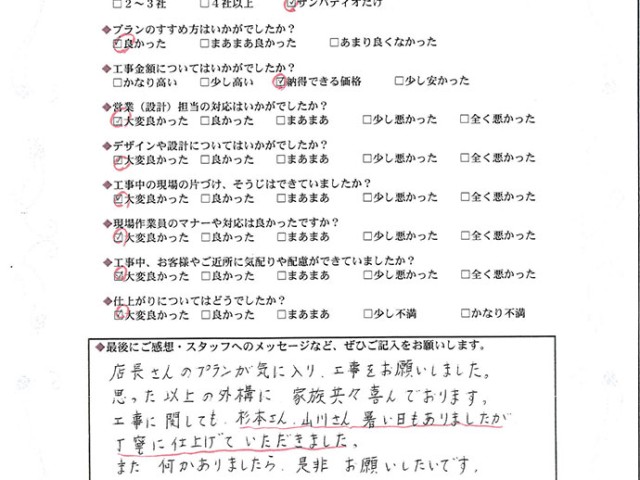 □2～3社 □4社以上 ☑サンパティオだけ
◆プランのすすめ方はいかがでしたか？
☑良かった □まあまあ良かった □あまり良くなかった
◆工事金額についてはいかがでしたか？
□かなり高い □少し高い ☑納得できる価格 □少し安かった
◆営業（設計）担当の対応はいかがでしたか？
☑大変良かった □良かった □まあまあ □少し悪かった □全く悪かった
◆デザインや設計についてはいかがでしたか？
☑大変良かった □良かった □まあまあ □少し悪かった □全く悪かった
◆工事中の現場の片づけ、そうじはできていましたか？
☑大変良かった □良かった □まあまあ □少し悪かった □全く悪かった
◆現場作業員のマナーや対応は良かったですか？
☑大変良かった □良かった □まあまあ □少し悪かった □全く悪かった
◆工事中、お客様やご近所に気配りや配慮ができていましたか？
☑大変良かった □良かった □まあまあ □少し悪かった □全く悪かった
◆仕上がりについてはどうでしたか？
☑大変良かった □良かった □まあまあ □少し不満 □かなり不満
◆最後にご感想・スタッフへのメッセージなど、ぜひご記入をお願いします。
店長さんのプランが気に入り、工事をお願いしました。
思った以上の外構に 家族共々喜んでおります。
工事に関しても、杉本さん、山川さん 暑い日もありましたが
丁寧に仕上げていただきました。
また 何かありましたら、是非 お願いしたいです。